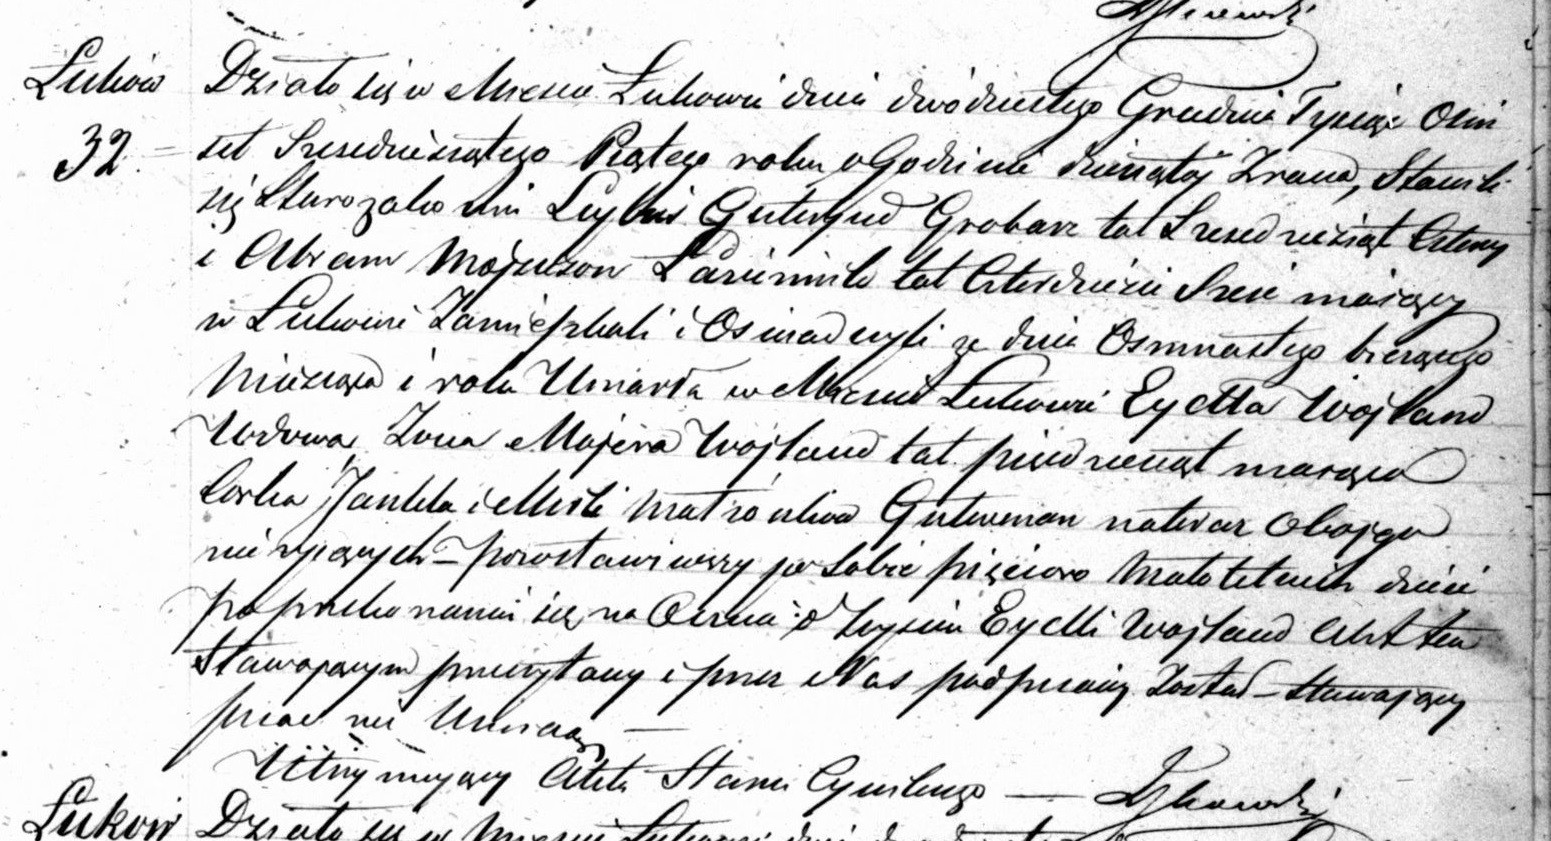 Łuków
32
Działo się w Mieście Łukowie dnia dwódziestego Grudnia Tysiąc Ośm
set Szesedziesiątego Piątego roku o Godzinie dziesiątej Zrana, Stawili
się Starozakonni Leybuś Gutwand Grobarz lat Szesedziesiąt Cztery
i Abram Mojzeszon lat Czterdzieście Sześć mający
w Łukowie Zamięszkali i Osiwadczyli że dnia Osmnastego bieżącego
Miesiąca i roku Umarła w Mieście Łukowie Eydla Wojland
Wdowa, Zona Majera Wojland lat piędziesiąt mająca
Corka Jankla i małżonków Gutwman niegdy Obojga
nie żyjących – pozostawiwszy po Sobie pięcioro Małoletnich dzieci
po przekonaniu się na Oczna o Zejściu Eydli Wojland Akt ten
Stawającym przeczytany i przez Nas podpisany Został – Stawający
pisac nie Umieją —
Utrzymujący Akta Stanu Cywilnego —
Łuków Działo się w Mieście Łukowie dnia